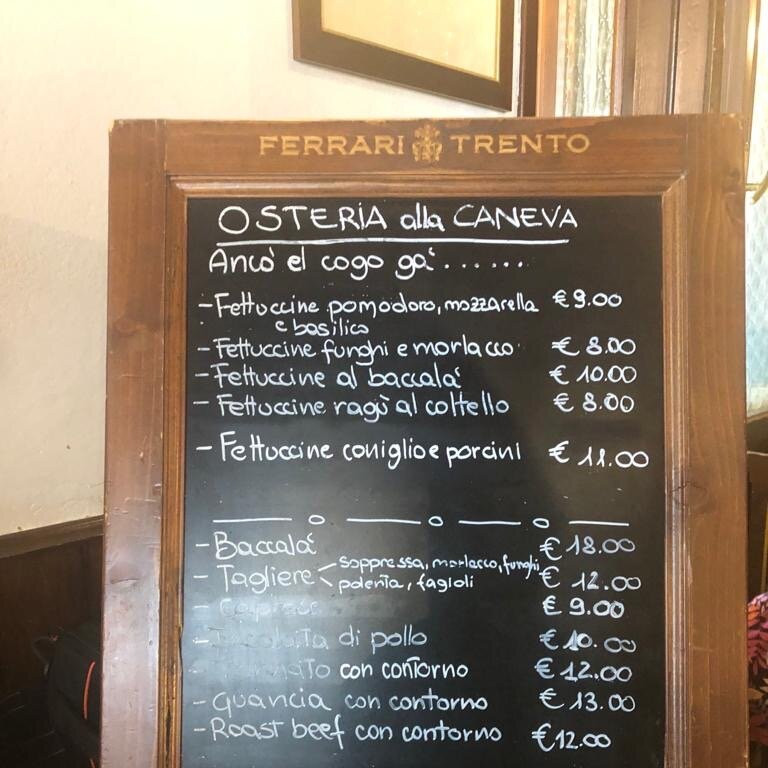 FERRARI TRENTO
OSTERIA alla CANEVA
Ancò el cogo ga'......
- Fettuccine pomodoro, mozzarella € 9.00
e basilico
- Fettuccine funghi e morlacco € 8.00
- Fettuccine al baccalà € 10.00
- Fettuccine ragù al coltello € 8.00
- Fettuccine coniglio e porcini € 11.00
- Baccalà € 18.00
- Tagliere soppressa, morlacco, funghi € 12.00
polenta, fagioli
- Caprese € 9.00
- di pollo € 10.00
- con contorno € 12.00
- Guancia con contorno € 13.00
- Roast beef con contorno € 12.00